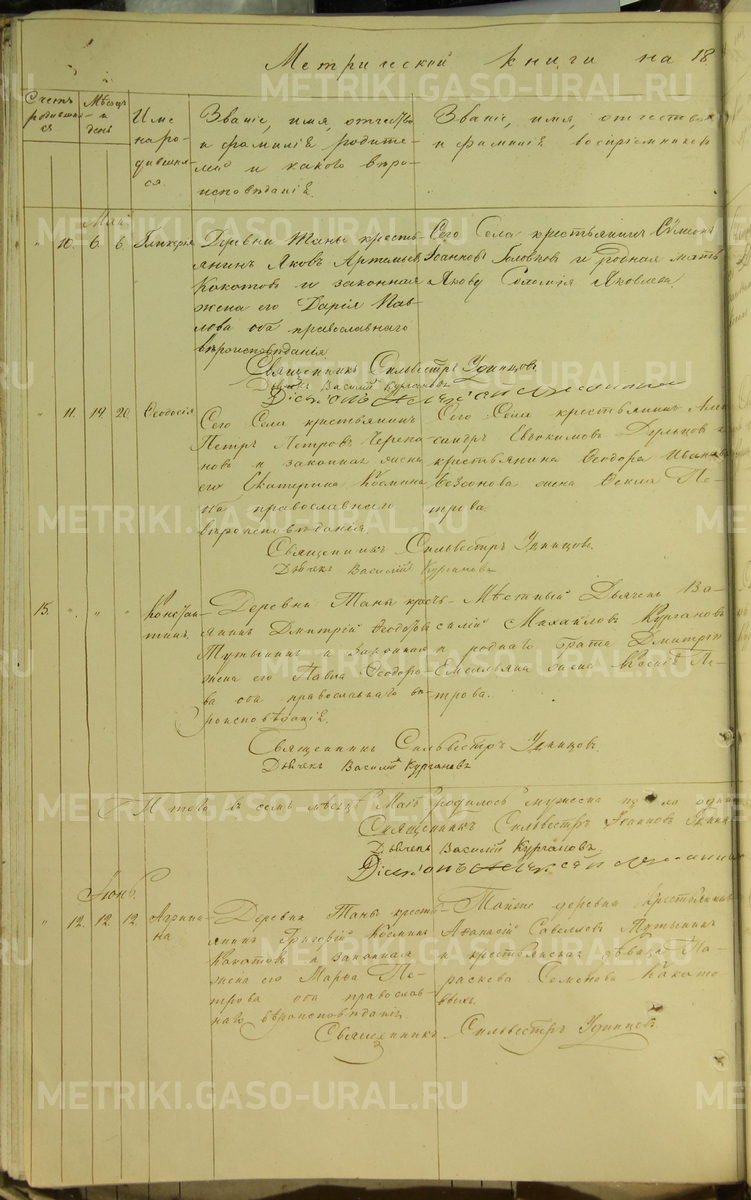 Метрической книги на 18
Счетъ родившихся
Мѣсяц и день
Имена родившихся.
Званіе, имя, отчество и фамилія родителей и какого вѣроисповѣданія.
Званіе, имя, отчество и фамилія воспріемниковъ
Май
" 10. 6. 6. Гликерія
Деревни Таны кресть-
янинъ Яковъ Артемьевъ
Кокотовъ и законная
жена его Дарія Пав-
лова оба православнаго
вѣроисповѣданія.
Сего Села крестьянинъ Сѵмеонъ
Іоанновъ и родная мать
Якову Соломія Яковлева
Священникъ Сильвестръ Удинцовъ
Дьячекъ Василій Кургановъ
Діаконъ
" 11. 19 20 Ѳеодосія
Сего Села крестьянинъ
Петръ Петровъ Черепа-
новъ и законная жена
его Екатерина Космина
оба православнаго
вѣроисповѣданія.
Сего Села крестьянинъ Алек-
сандръ Евдокимовъ
крестьянина Ѳеодора Иванова
жена Ксенія Пе-
трова
Священникъ Сильвестръ Удинцовъ.
Дьячекъ Василій Кургановъ
15. " " " Констан-
тинъ.
Деревни Таны кресть-
янинъ Дмитрій Ѳеодоровъ
Тутынинъ и законная
жена его Павла Ѳеодоро-
ва оба православнаго вѣ-
роисповѣданія.
Мѣстный Дьячекъ Ва-
силій Михайловъ Кургановъ
и роднаго брата Дмитрію
Емельяна жена Пе-
трова.
Священникъ Сильвестръ Удинцовъ
Дьячекъ Василій Кургановъ
Итого въ семъ мѣсяцѣ Маіѣ родилось мужеска пола одинъ
Священникъ Сильвестръ Іоанновъ Удин
Дьячекъ Василій Кургановъ.
Діаконъ
Іюнь.
" 12. 12. 12. Агрипи-
на
Деревни Таны кресть-
янинъ Григорій Косминъ
Кокотовъ и законная
жена его Марья Пе-
трова оба православ-
наго вѣроисповѣданія.
Той же деревни крестьянинъ
Аѳанасій Савельевъ Тутынинъ
и крестьянская дѣвица Па-
раскева Семенова Кокото-
выхъ.
Священникъ Сильвестръ Удинцовъ
METRIKI.GASO-URAL.RU